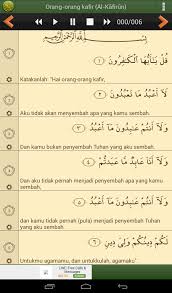 Orang-orang kafir (Al-Kāfirūn)
000/006
بِسْمِ اللَّهِ الرَّحْمَٰنِ الرَّحِيمِ
قُلْ يَا أَيُّهَا الْكَافِرُونَ ﴿١﴾
Katakanlah: "Hai orang-orang kafir,
لَا أَعْبُدُ مَا تَعْبُدُونَ ﴿٢﴾
Aku tidak akan menyembah apa yang kamu
sembah.
وَلَا أَنتُمْ عَابِدُونَ مَا أَعْبُدُ ﴿٣﴾
Dan kamu bukan penyembah Tuhan yang aku
sembah.
وَلَا أَنَا عَابِدٌ مَّا عَبَدتُّمْ ﴿٤﴾
Dan aku tidak pernah menjadi penyembah apa yang kamu
sembah,
وَلَا أَنتُمْ عَابِدُونَ مَا أَعْبُدُ ﴿٥﴾
dan kamu tidak pernah (pula) menjadi penyembah Tuhan
yang aku sembah.
لَكُمْ دِينُكُمْ وَلِيَ دِينِ ﴿٦﴾
Untukmu agamamu, dan untukkulah, agamaku".
LINE: Free Calls &
Messages